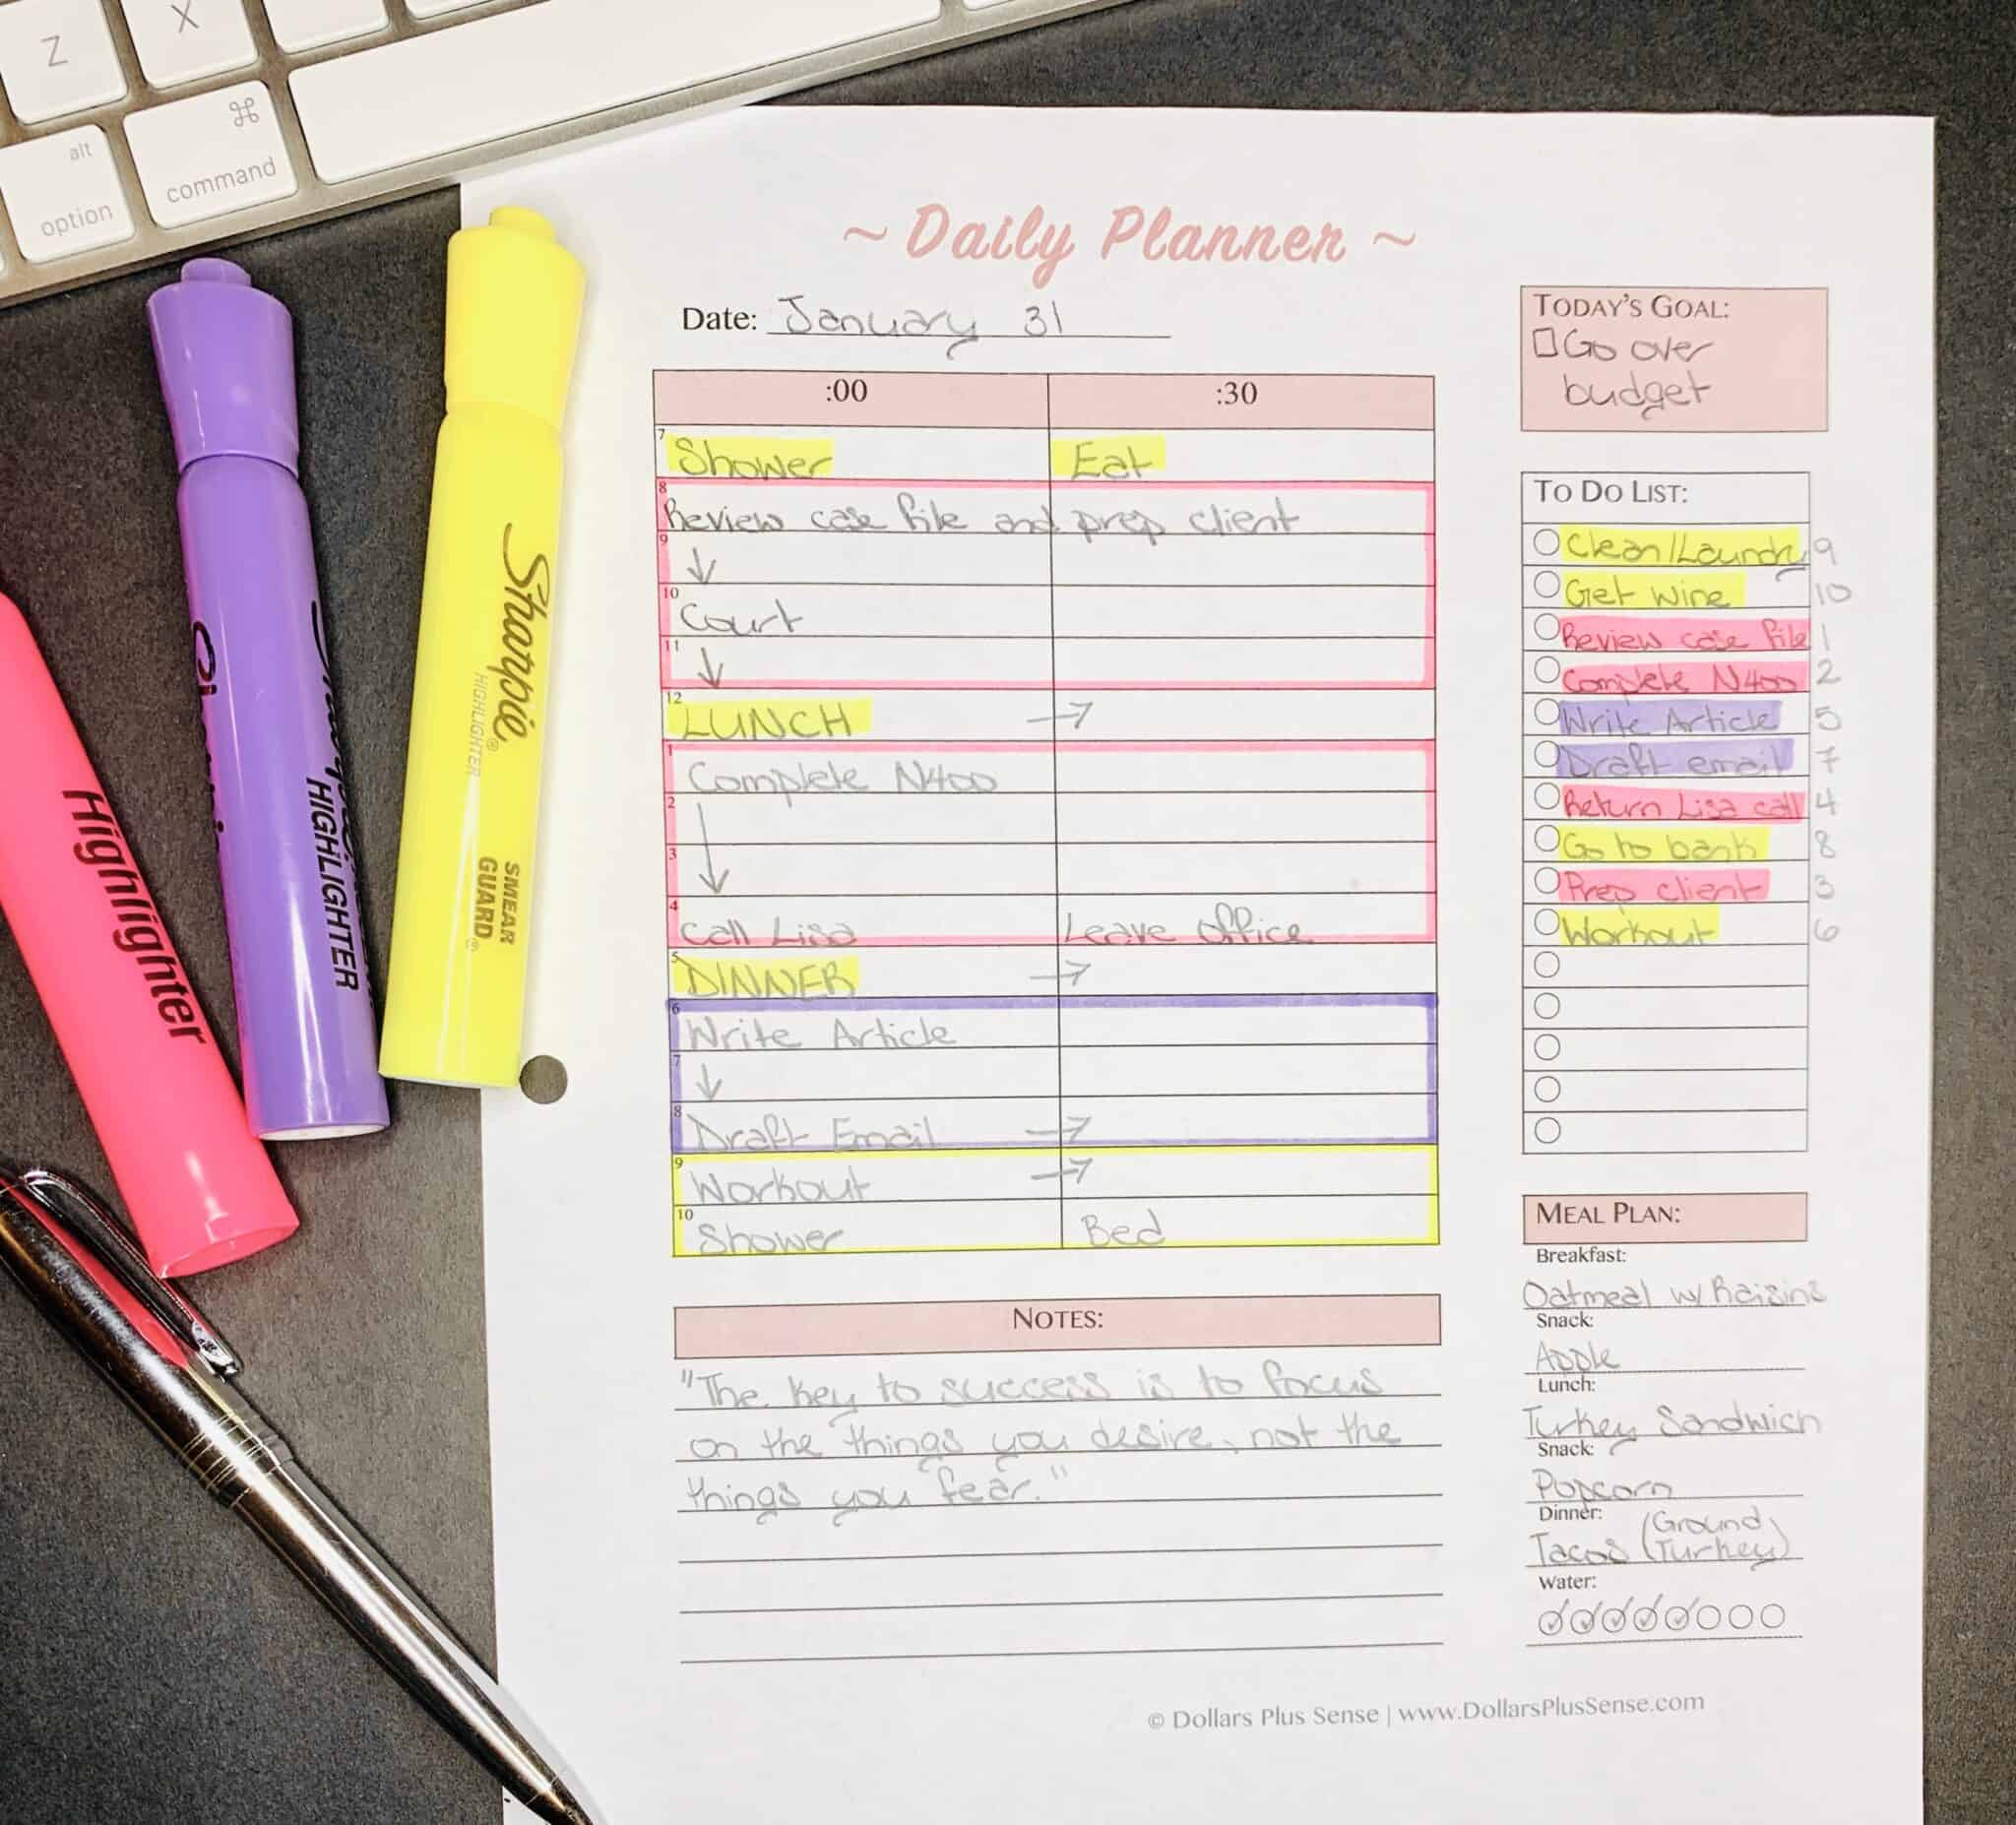 Z
X
⌘
alt
command
option
Sharpie®
HIGHLIGHTER
SMEAR
GUARD®
HIGHLIGHTER
Highlighter
~ Daily Planner ~
Date: January 31
:00 :30
7 Shower Eat
8 Review case file and prep client
9 ↓
10 Court
11 ↓
12 LUNCH →
1 Complete N400
2 ↓
3
4 Call Lisa Leave Office
5 DINNER →
6 Write Article
7 ↓
8 Draft Email →
9 Workout →
10 Shower Bed
NOTES:
"The key to success is to focus
on the things you desire, not the
things you fear."
TODAY'S GOAL:
Go over
budget
TO DO LIST:
Clean/Laundry 9
Get wine 10
Review case file 1
Complete N400 2
Write Article 5
Draft email 7
Return Lisa call 4
Go to bank 8
Prep client 3
Workout 6
MEAL PLAN:
Breakfast:
Oatmeal w/ Raisins
Snack:
Apple
Lunch:
Turkey Sandwich
Snack:
Popcorn
Dinner:
Tacos (Ground
Turkey)
Water:
© Dollars Plus Sense | www.DollarsPlusSense.com